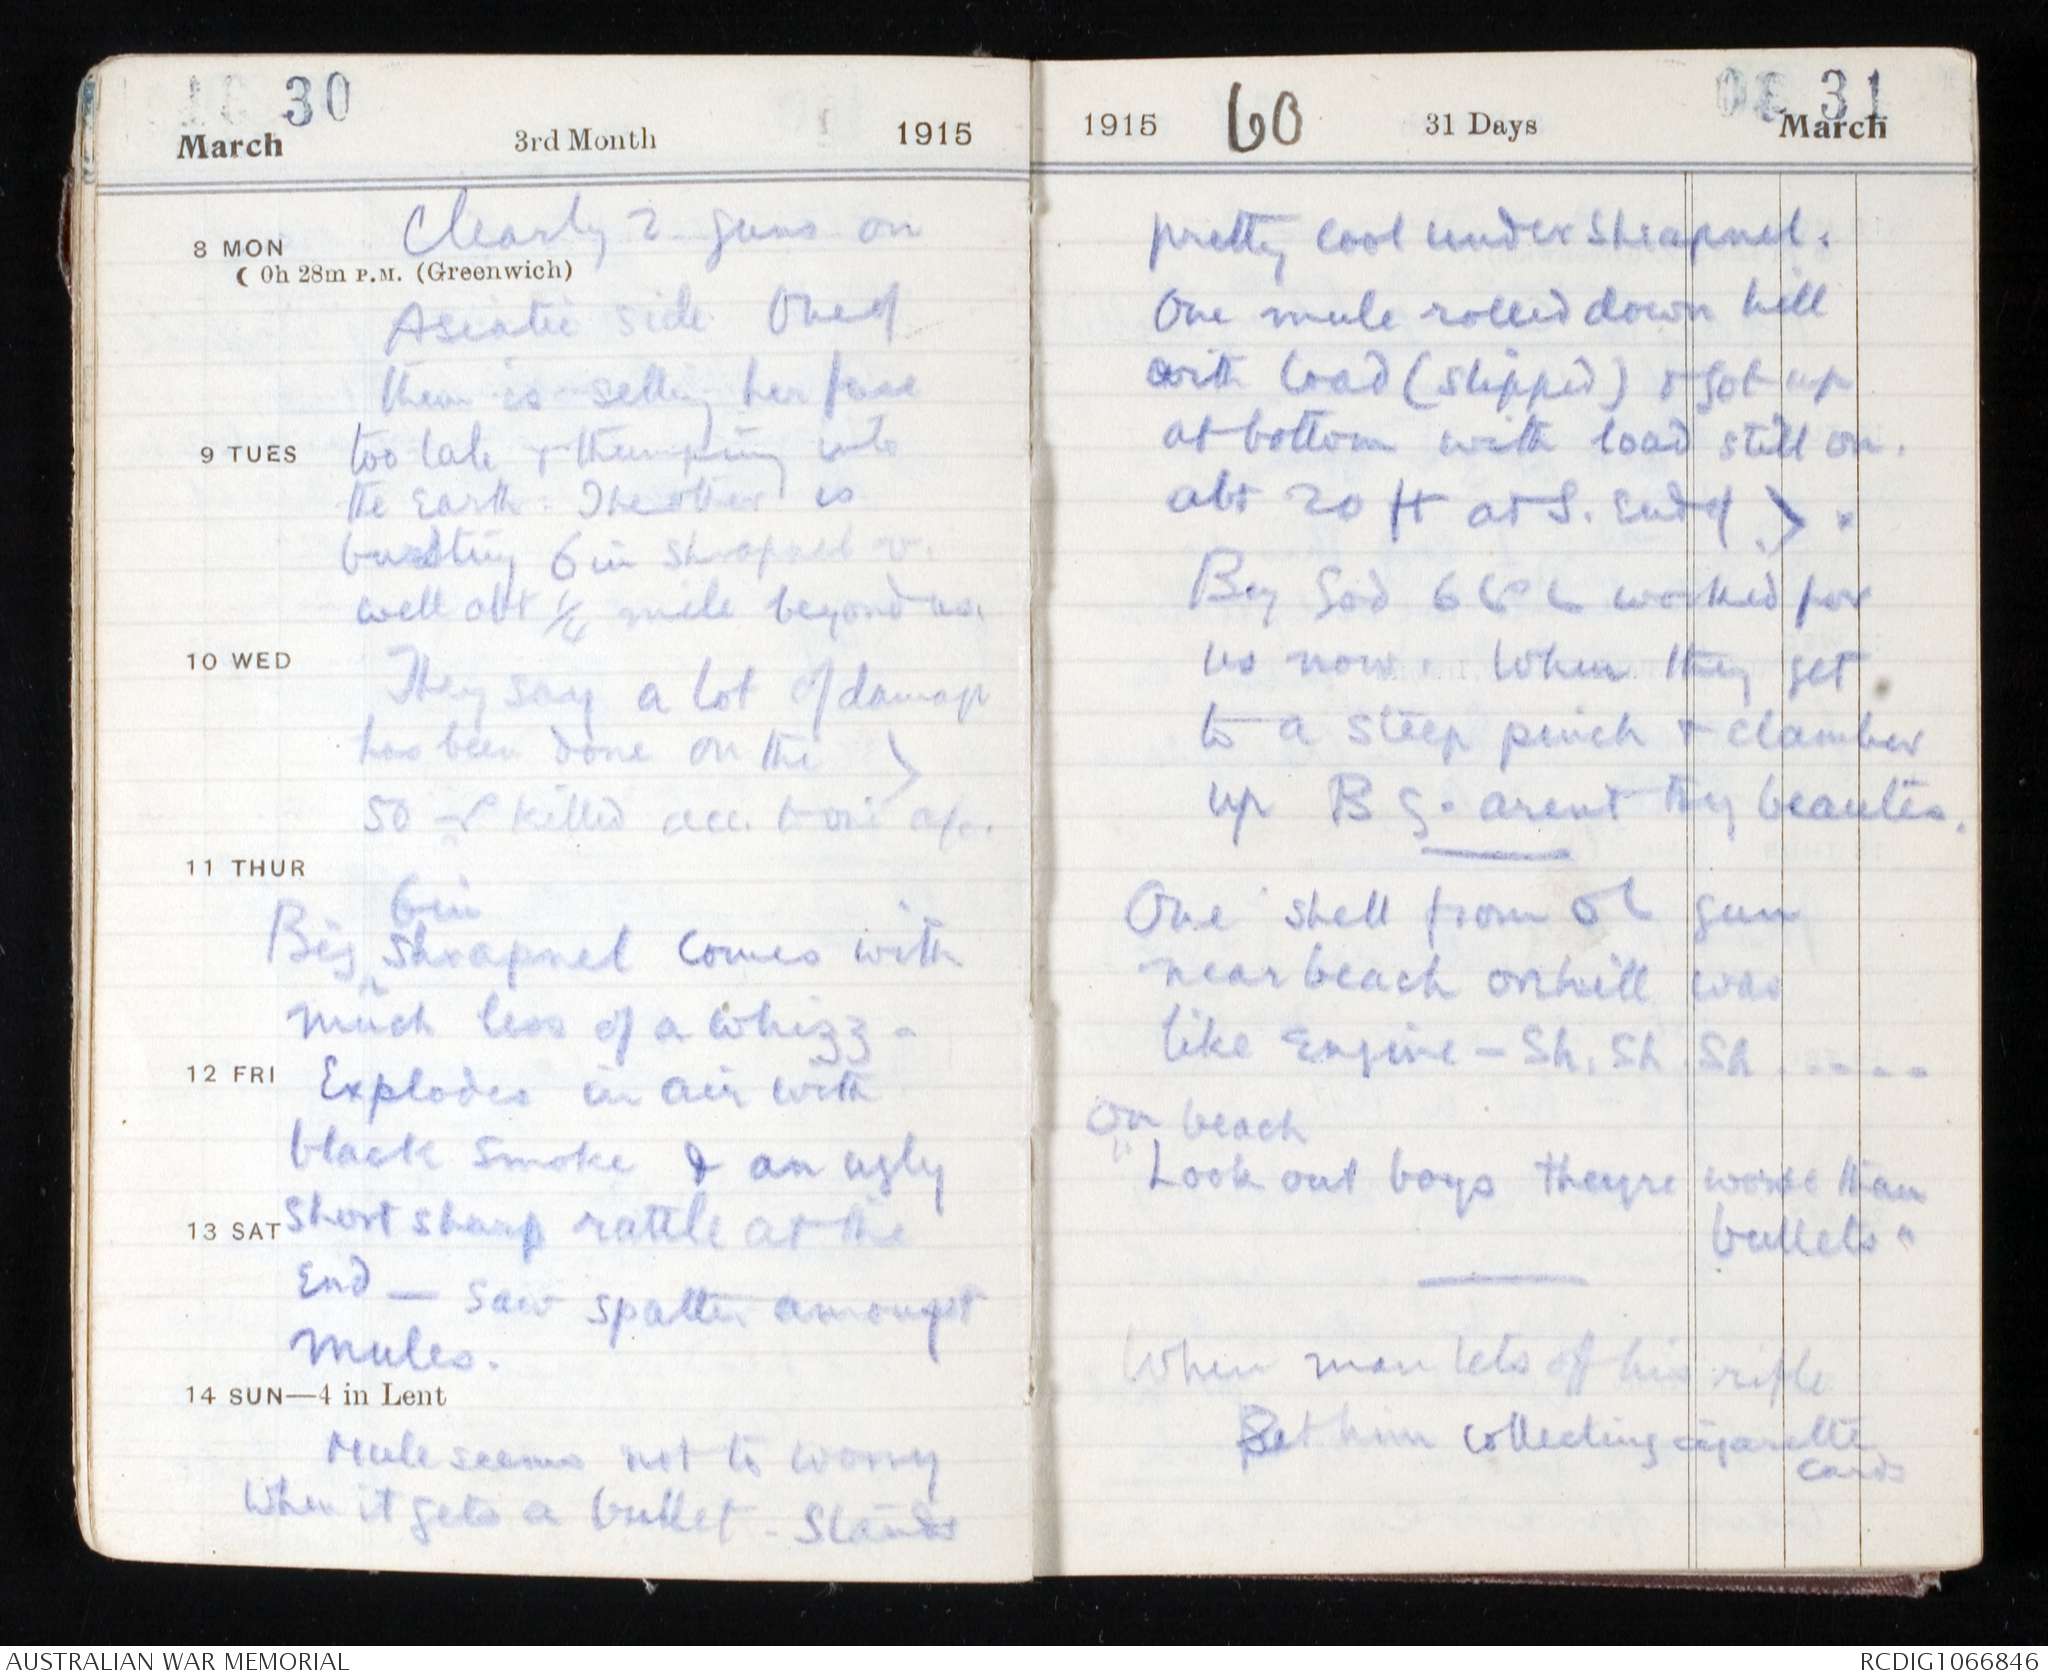 30
March 3rd Month 1915
8 MON
☾ 0h 28m P.M. (Greenwich)
Clearly 2 guns on
Asiatic side One of
them is setting her fuse
9 TUES
too late & thumping into
the earth. The other is
bursting 6 in shrapnel v.
well abt 1/4 mile beyond us.
10 WED
They say a lot of damage
has been done on the >
50 killed acc. to one
11 THUR
6 in
Big ^ shrapnel comes with
much less of a whizz -
12 FRI
Explodes in air with
black smoke & an ugly
13 SAT
short sharp rattle at the
end — saw spatter amongst
mules.
14 SUN—4 in Lent
Mule seems not to worry
when it gets a bullet - Stands
1915 60 31 Days March
31
pretty cool under shrapnel.
One mule rolled down hill
with load (slipped) & got up
at bottom with load still on.
abt 20 ft at S. end of > .
By God worked for
us now. When they get
to a steep pinch & clamber
up B G. arent they beauties.
One shell from gun
near beach on hill was
like Engine - Sh. Sh Sh .....
On beach
"Look out boys theyre worse than
bullets"
When man lets off his rifle
Set him collecting cigarette
cards
AUSTRALIAN WAR MEMORIAL
RCDIG1066846